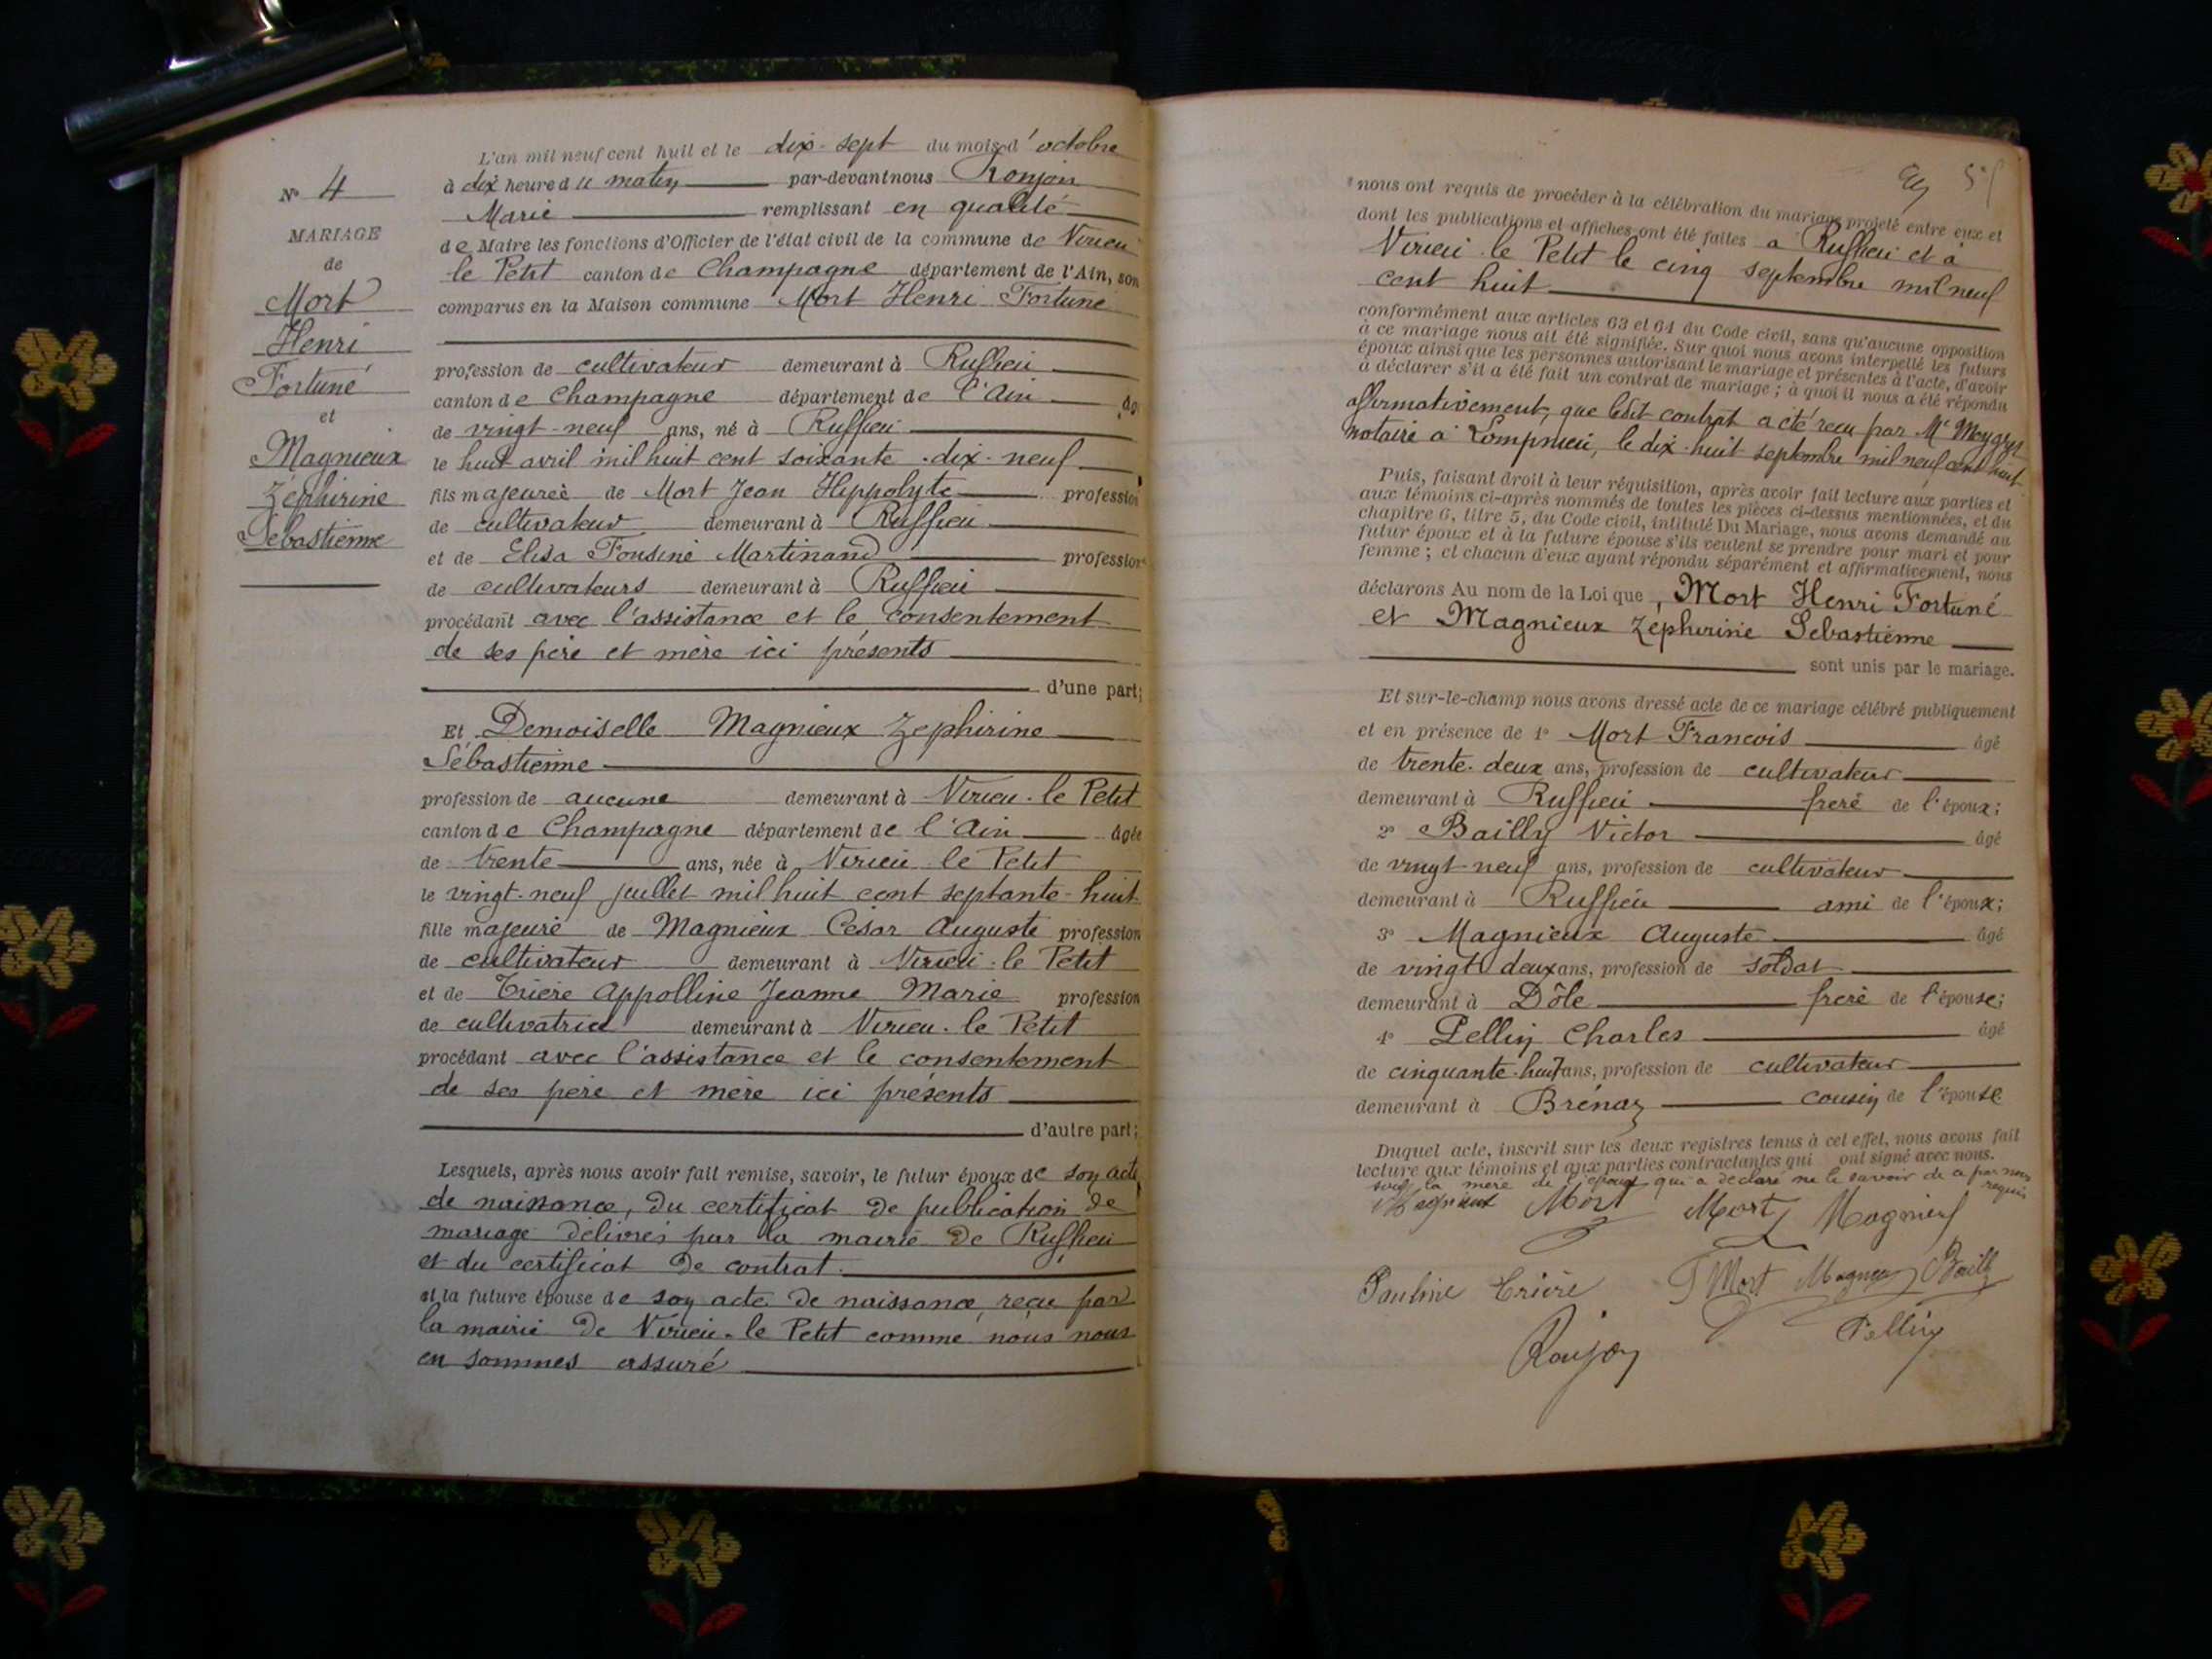 L'an mil neuf cent huit et le dix-sept du mois d'octobre
N° 4
à dix heure du matin par-devant nous Ronjon
Marie remplissant en qualité
MARIAGE
de
Mort
Henri
Fortuné
et
Magnieux
Zéphirine
Sébastienne
de Maire les fonctions d'Officier de l'état civil de la commune de Virieu
le Petit canton de Champagne département de l'Ain, son
comparus en la Maison commune Mort Henri Fortuné
profession de cultivateur demeurant à Ruffieu
canton de Champagne département de l'Ain âg
de vingt-neuf ans, né à Ruffieu
le huit avril mil huit cent soixante-dix-neuf
fils majeure de Mort Jean Hippolyte profession
de cultivateur demeurant à Ruffieu
et de Elisa Martinand profession
de cultivateurs demeurant à Ruffieu
procédant avec l'assistance et le consentement
de ses père et mère ici présents
d'une part;
Et Demoiselle Magnieux Zephirine
Sébastienne
profession de aucune demeurant à Virieu-le Petit
canton de Champagne département de l'Ain âgée
de trente ans, née à Virieu le Petit
le vingt-neuf juillet mil huit cent septante-huit
fille majeure de Magnieux César Auguste profession
de cultivateur demeurant à Virieu-le Petit
et de Trière Appolline Jeanne Marie profession
de cultivatrice demeurant à Virieu-le Petit
procédant avec l'assistance et le consentement
de ses père et mère ici présents
d'autre part;
Lesquels, après nous avoir fait remise, savoir, le futur époux de son acte
de naissance, du certificat de publication de
mariage délivrés par la mairie de Ruffieu
et du certificat de contrat.
et la future épouse de son acte de naissance, reçu par
la mairie de Virieu-le Petit comme nous nous
en sommes assuré
nous ont requis de procéder à la célébration du mariage projeté entre eux et
dont les publications et affiches ont été faites a Ruffieu et à
Virieu-le Petit le cinq septembre mil neuf
cent huit
conformément aux articles 63 et 64 du Code civil, sans qu'aucune opposition
à ce mariage nous ait été signifiée. Sur quoi nous avons interpellé les futurs
époux ainsi que les personnes autorisant le mariage et présentes à l'acte, d'avoir
à déclarer s'il a été fait un contrat de mariage; à quoi il nous a été répondu
affirmativement, que ledit contrat a été reçu par Me
notaire à Lompnieu, le dix-huit septembre mil neuf cent huit
Puis, faisant droit à leur réquisition, après avoir fait lecture aux parties et
aux témoins ci-après nommés de toutes les pièces ci-dessus mentionnées, et du
chapitre 6, titre 5, du Code civil, intitulé Du Mariage, nous avons demandé au
futur époux et à la future épouse s'ils veulent se prendre pour mari et pour
femme; et chacun d'eux ayant répondu séparément et affirmativement, nous
déclarons Au nom de la Loi que, Mort Henri Fortuné
et Magnieux Zéphirine Sébastienne
sont unis par le mariage.
Et sur-le-champ nous avons dressé acte de ce mariage célébré publiquement
et en présence de 1° Mort François âgé
de trente-deux ans, profession de cultivateur
demeurant à Ruffieu frère de l'époux;
2° Bailly Victor âgé
de vingt-neuf ans, profession de cultivateur
demeurant à Ruffieu ami de l'époux;
3° Magnieux Auguste âgé
de vingt deux ans, profession de soldat
demeurant à Dôle frère de l'épouse;
4° Pellin Charles âgé
de cinquante-huit ans, profession de cultivateur
demeurant à Brénaz cousin de l'épouse
Duquel acte, inscrit sur les deux registres tenus à cet effet, nous avons fait
lecture aux témoins et aux parties contractantes qui ont signé avec nous.
sauf la mère de l'époux qui a déclaré ne le savoir de ce par nous
requis
Magnieux Mort Mort Magnieux
Pauline Trière F Mort Magnieux Bailly
Ronjon Pellin